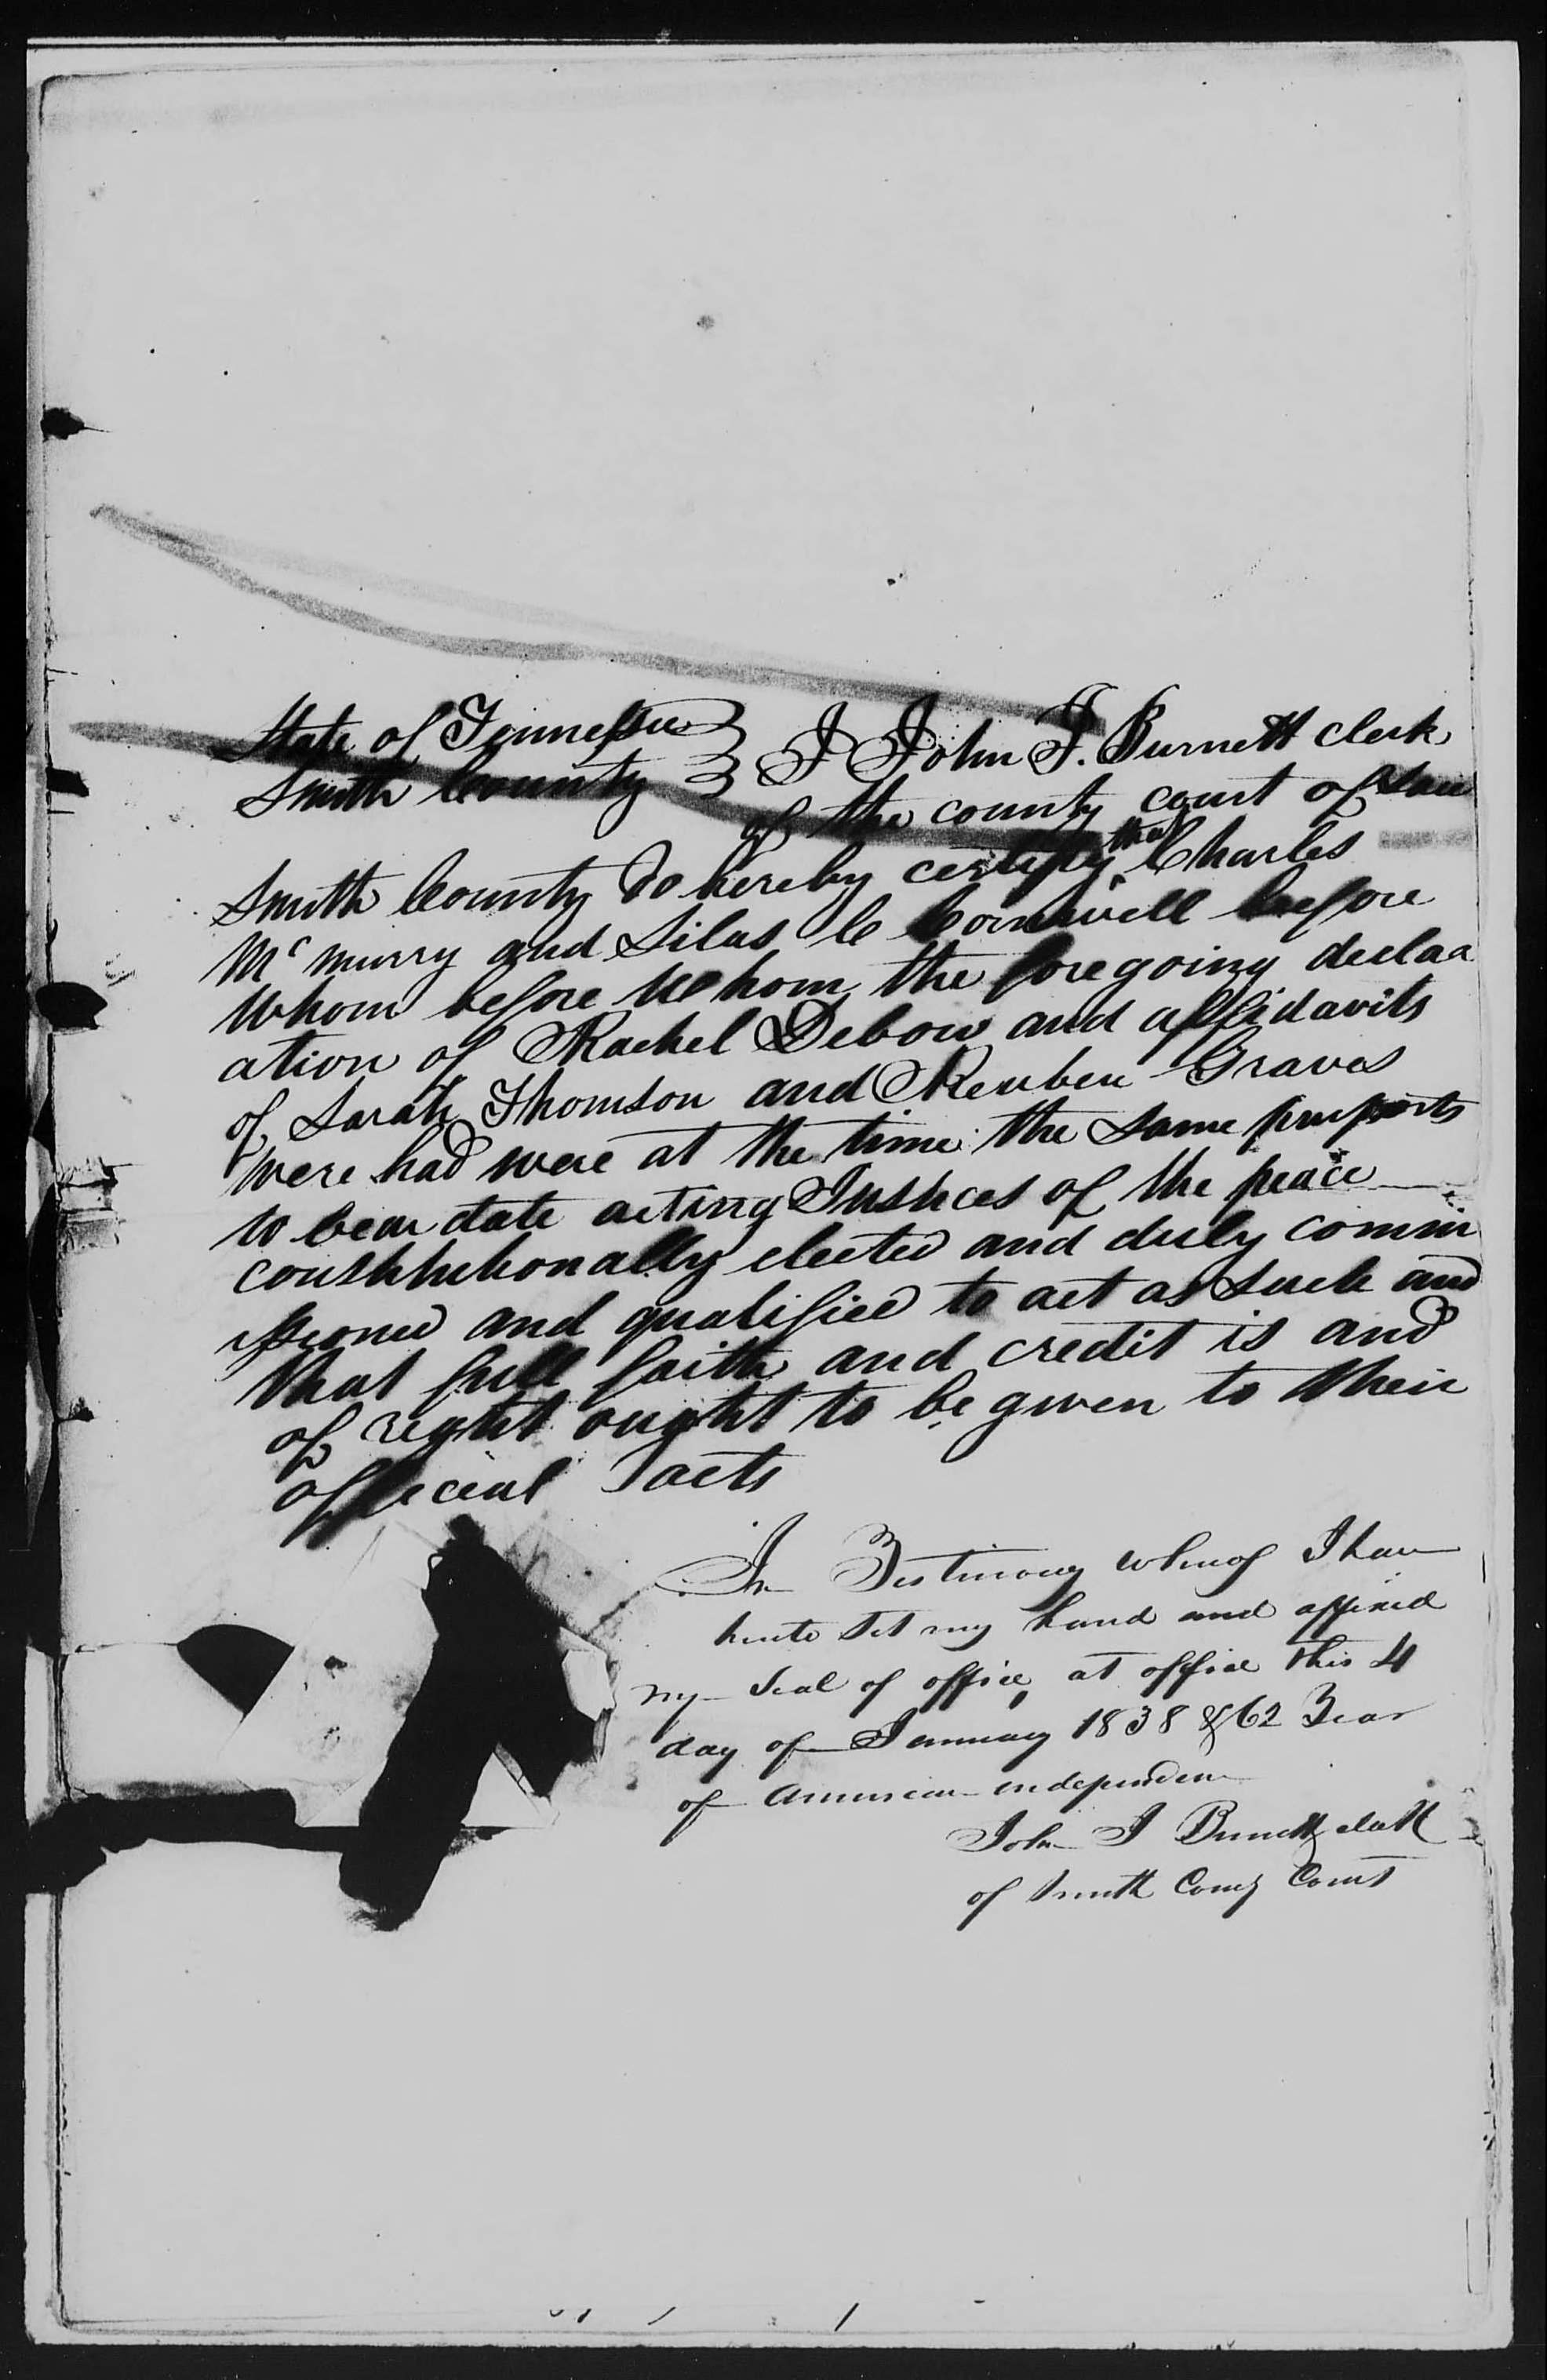 State of Tennessee }
Smith County } I John J. Burnett clerk
of the county court of said
Smith County do hereby certify that Charles
McMurry and Silas C Cornwell before
whom before whom the foregoing declaa
ation of Rachel Debow and affidavits
of Sarah Thomson and Reuben Graves
were had were at the time the same purports
to bear date acting Justices of the peace
constitutionally elected and duly comm
issioned and qualified to act as such and
that full faith and credit is and
of right ought to be given to their
official acts
In Testimony whereof I have
hereto set my hand and affixed
my seal of office, at office this 4
day of January 1838 & 62 Year
of American independence
John J Burnett clerk
of Smith County Court